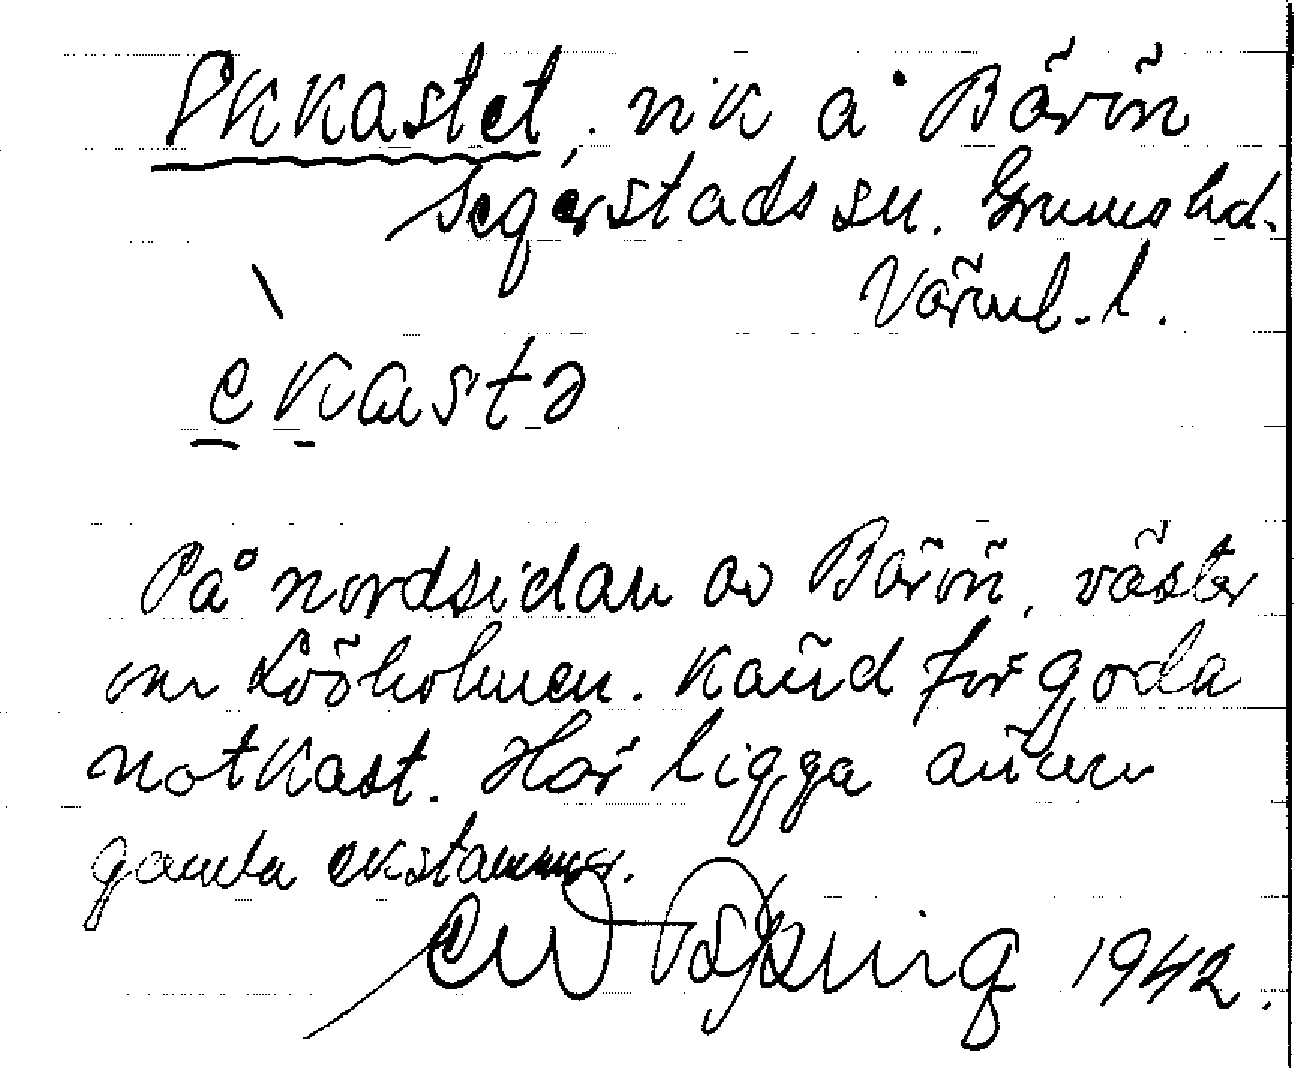 Ekkastet, vik å Bärön
Segerstads sn. Grums hd.
Värml. l.
ekastə
På nordsidan av Bärön, väster
om Lösholmen. Känd för goda
notkast. Här ligga ännu
gamla ekstammar.
1942.